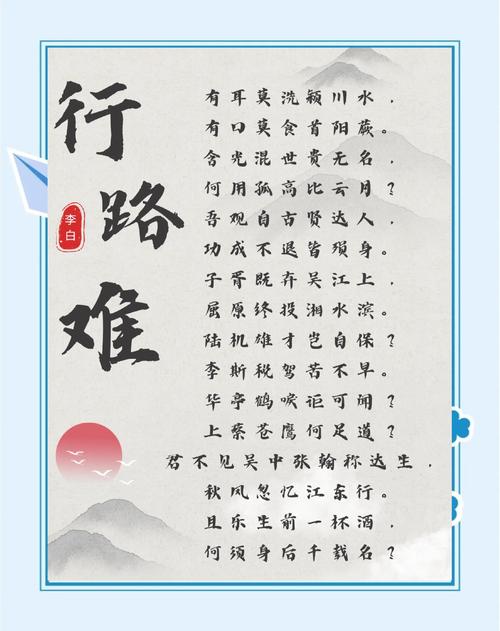 行路难
李白
有耳莫洗颍川水，
有口莫食首阳蕨。
含光混世贵无名，
何用孤高比云月？
吾观自古贤达人，
功成不退皆殒身。
子胥既弃吴江上，
屈原终投湘水滨。
陆机雄才岂自保？
李斯税驾苦不早。
华亭鹤唳讵可闻？
上蔡苍鹰何足道？
君不见吴中张翰称达生，
秋风忽忆江东行。
且乐生前一杯酒，
何须身后千载名？